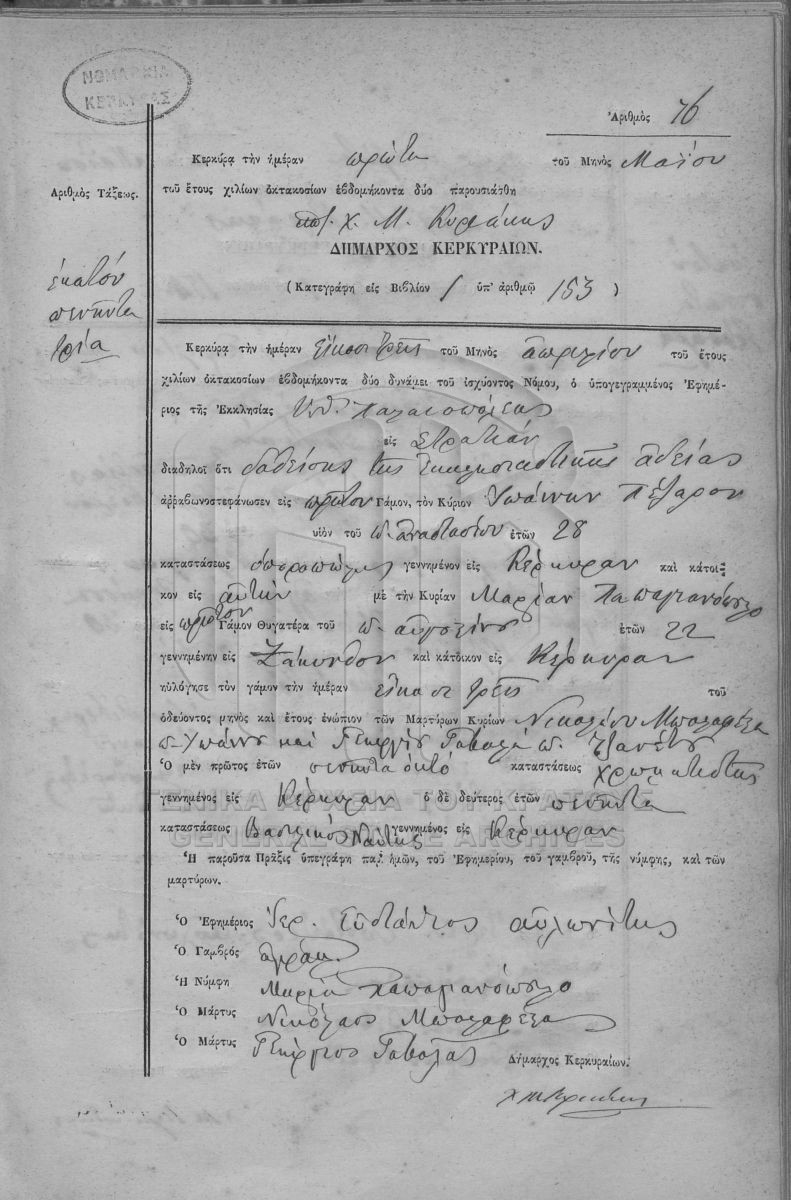 ΝΟΜΑΡΧΙΑ
ΚΕΡΚΥΡΑΣ
Ἀριθμὸς 76
Κερκύρᾳ τὴν ἡμέραν πρώτῃ τοῦ Μηνὸς Μαΐου
Ἀριθμὸς Τάξεως.
τοῦ ἔτους χιλίων ὀκτακοσίων ἑβδομήκοντα δύο παρουσιάσθη
Χ. Μ. Κυριάκης
ΔΗΜΑΡΧΟΣ ΚΕΡΚΥΡΑΙΩΝ.
(Κατεγράφη εἰς Βιβλίον 1 ὑπ' ἀριθμῷ 153)
ἑκατόν
πενῆντα
τρία
Κερκύρᾳ τὴν ἡμέραν εἴκοσι τρεῖς τοῦ Μηνὸς Απριλίου τοῦ ἔτους
χιλίων ὀκτακοσίων ἑβδομήκοντα δύο δυνάμει τοῦ ἰσχύοντος Νόμου, ὁ ὑπογεγραμμένος Ἐφημέ-
ριος τῆς Ἐκκλησίας Υ.Θ. Παλαιοπόλεως
εἰς Στρατιάν
διαδηλοῖ ὅτι δοθείσης της Εκκλησιαστικης αδείας
ἀῤῥαβωνοστεφάνωσεν εἰς πρῶτον Γάμον, τὸν Κύριον Ιωάννην Πέζαρον
υἱὸν τοῦ π. Αναστασίου ἐτῶν 28
καταστάσεως γεννημένον εἰς Κέρκυραν καὶ κάτοι-
κον εἰς αυτήν μὲ τὴν Κυρίαν Μαρίαν Παπαγιανόπουλο
εἰς πρῶτον Γάμον Θυγατέρα τοῦ π. ἐτῶν 22
γεννημένην εἰς Ζάκυνθον καὶ κάτοικον εἰς Κέρκυραν
ηὐλόγησε τὸν γάμον τὴν ἡμέραν είκοσι τρεῖς τοῦ
ὁδεύοντος μηνὸς καὶ ἔτους ἐνώπιον τῶν Μαρτύρων Κυρίων Νικολάου Μπαλαφέζα
π. Ιωάννη και Γεωργίου Γαβαλᾶ π. Τζανέτου
Ὁ μὲν πρῶτος ἐτῶν πενῆντα οκτό καταστάσεως
γεννημένος εἰς Κέρκυραν ὁ δὲ δεύτερος ἐτῶν πενῆντα
καταστάσεως Βασιλικός Ναύτης γεννημένος εἰς Κέρκυραν
ΓΕΝΙΚΑ ΑΡΧΕΙΑ ΤΟΥ ΚΡΑΤΟΥΣ
GENERAL STATE ARCHIVES
Ἡ παροῦσα Πρᾶξις ὑπεγράφη παρ' ἡμῶν, τοῦ Ἐφημερίου, τοῦ γαμβροῦ, τῆς νύμφης, καὶ τῶν
μαρτύρων.
Ὁ Ἐφημέριος Ιερ. Ευστάθιος Αυλωνίτης
Ὁ Γαμβρός
Ἡ Νύμφη Μαρία Παπαγιανόπουλο
Ὁ Μάρτυς Νικόλαος Μπαλαφέζας
Ὁ Μάρτυς Γεώργιος Γαβαλᾶς
Δήμαρχος Κερκυραίων.
Χ Μ Κυριάκης